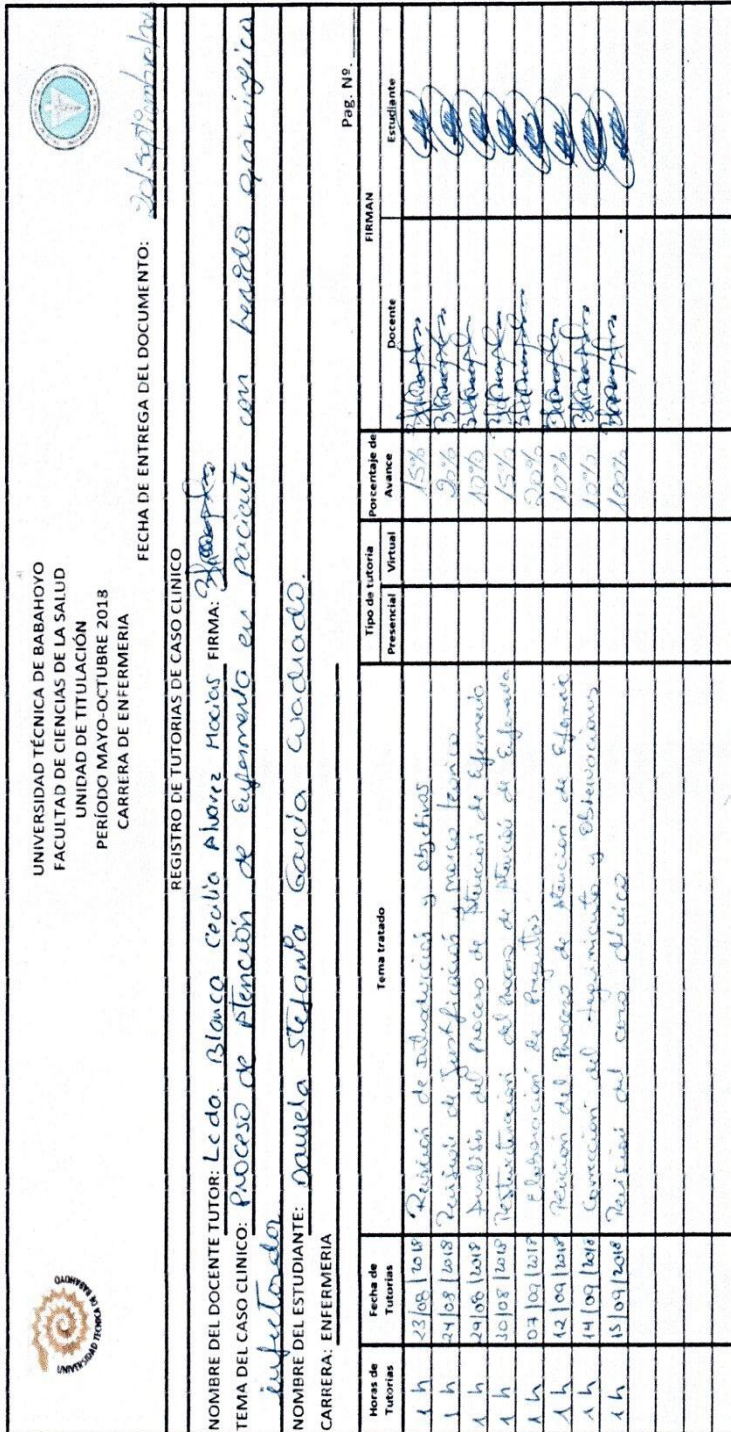 UNIVERSIDAD TÉCNICA DE BABAHOYO
FACULTAD DE CIENCIAS DE LA SALUD
UNIDAD DE TITULACIÓN
PERÍODO MAYO-OCTUBRE 2018
CARRERA DE ENFERMERIA
UNIVERSIDAD TECNICA DE BABAHOYO
FECHA DE ENTREGA DEL DOCUMENTO:
REGISTRO DE TUTORIAS DE CASO CLINICO
NOMBRE DEL DOCENTE TUTOR: Lcda. Blanca Cecilia Alvarez Macias FIRMA:
TEMA DEL CASO CLINICO: Proceso de Atención de Enfermería en paciente con herida quirúrgica
infectada
NOMBRE DEL ESTUDIANTE: Daniela Stefania García Cuadrado.
CARRERA: ENFERMERIA
Pag. Nº.
Horas de Tutorias Fecha de Tutorias Tema tratado Tipo de tutoria Presencial Virtual Porcentaje de Avance FIRMAN Docente Estudiante
1 h 23/08/2018 Revisión de introducción y objetivos 15%
1 h 24/08/2018 Revisión de Justificación y marco teorico 20%
1 h 29/08/2018 Analisis del Proceso de Atención de Efermeria 10%
1 h 30/08/2018 del Proceso de Atención de Enfermeria 15%
1 h 07/09/2018 Elaboración de 20%
1 h 12/09/2018 del Proceso de Atencion de 10%
1 h 14/09/2018 Corrección del seguimiento y Observaciones 10%
1 h 15/09/2018 Revisión del caso clínico 100%